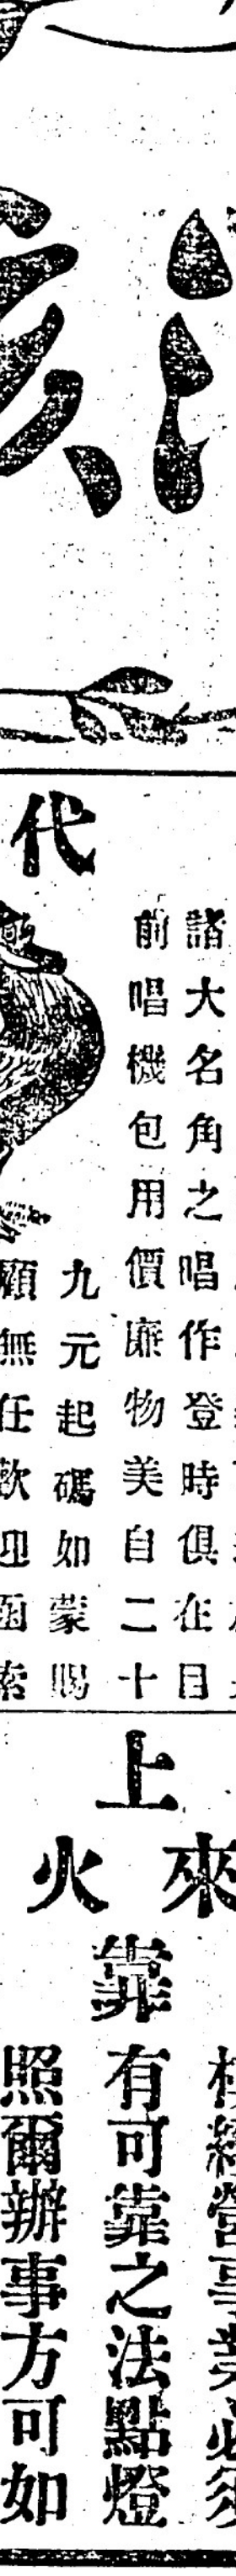 代
諸大名角之唱作登時俱在目
前唱機包用價廉物美自二十
九元起碼如蒙賜
顧無任歡迎函索
上
來
火
靠
經營事業必須
有可靠之法點燈
照爾辦事方可如